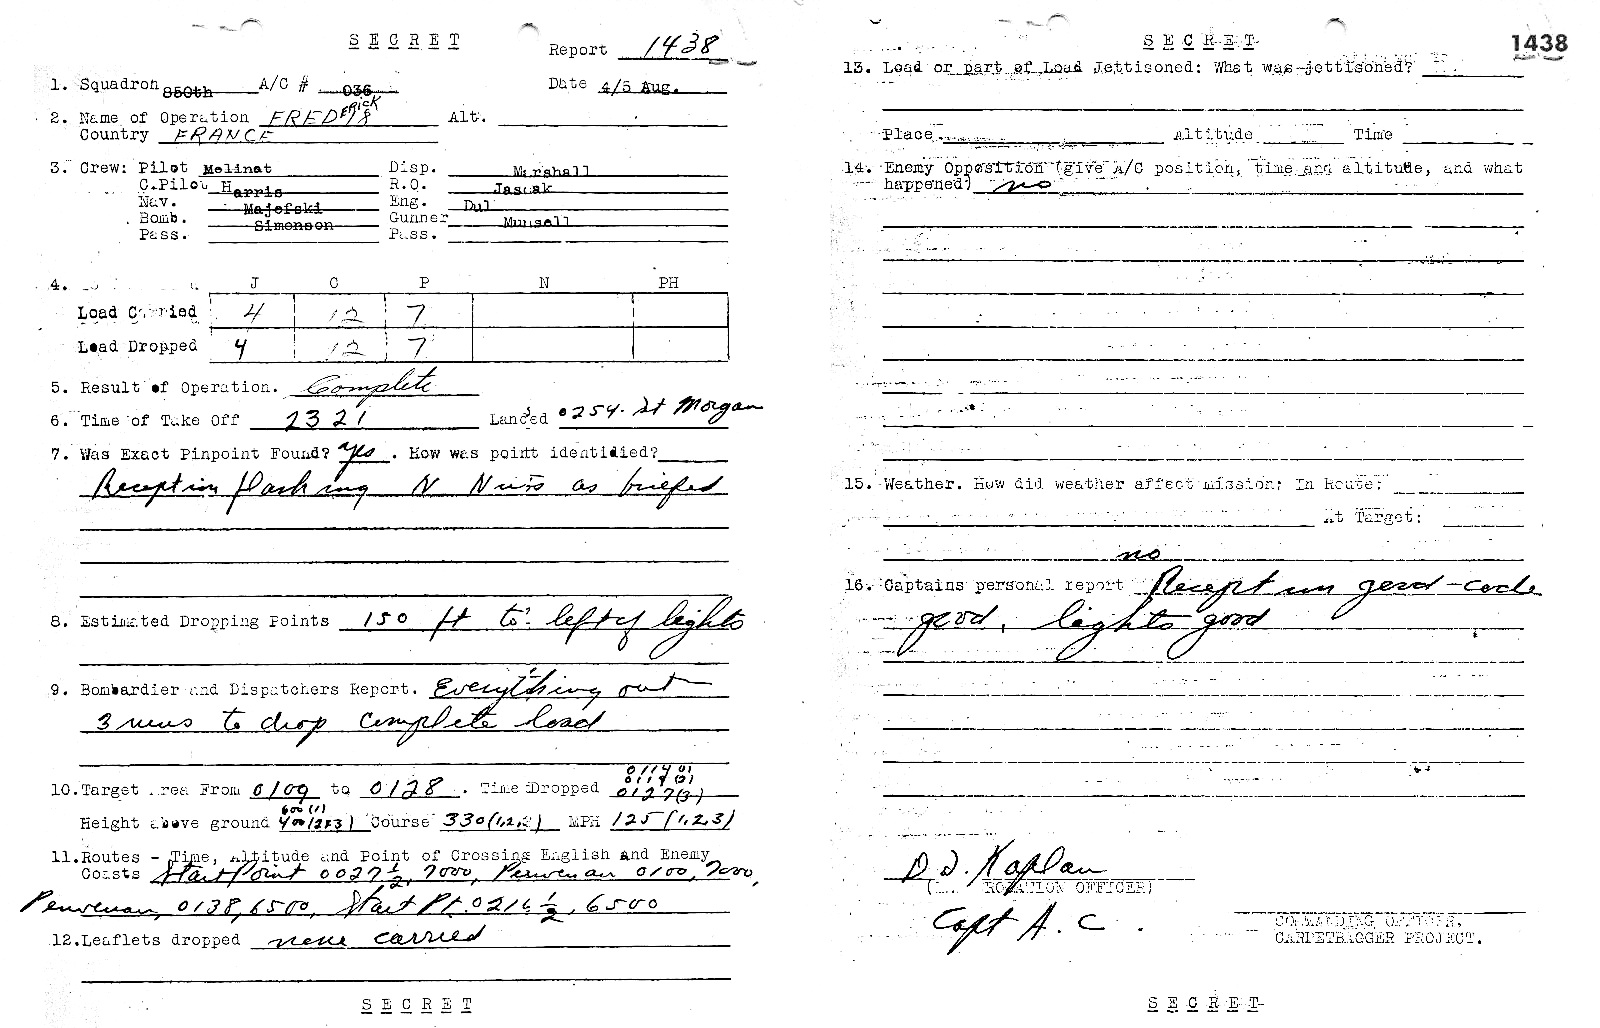 S E C R E T
Report 1438
1. Squadron 850th A/C # 036 Date 4/5 Aug.
2. Name of Operation FREDERICK 8 Alt.
Country FRANCE
3. Crew: Pilot Melinat Disp. Marshall
C.Pilot Harris R.O. Jascak
Nav. Majefski Eng. Dul
Bomb. Simonson Gunner Munsell
Pass. Pass.
4. J C P N PH
Load Carried 4 12 7
Load Dropped 4 12 7
5. Result of Operation. Complete
6. Time of Take Off 2321 Landed 0254. St Morgan
7. Was Exact Pinpoint Found? Yes. How was point identidied?
Reception flashing N as briefed
8. Estimated Dropping Points 150 ft to left of lights
9. Bombardier and Dispatchers Report. Everything out
3 runs to drop complete load
10. Target Area From 0109 to 0128. Time Dropped 0114 (1) 0119 (2) 0127 (3)
Height above ground 600 (1) 400 (2&3) Course 330 (1,2,3) MPH 125 (1,2,3)
11. Routes - Time, Altitude and Point of Crossing English and Enemy
Coasts Start Point 0027½, 7000, Penvenan 0100, 7000,
Penvenan, 0138, 6500, Start Pt. 0216½, 6500
12. Leaflets dropped none carried
S E C R E T
S E C R E T
1438
13. Load or part of Load Jettisoned: What was jettisoned?
Place Altitude Time
14. Enemy Opposition (give A/C position, time and altitude, and what
happened) no
15. Weather. How did weather affect mission: In Route:
At Target:
no
16. Captains personal report Reception good - code
good, lights good
D. J. Kaplan
OFFICER)
Capt A. C.
COMMANDING OFFICER,
CARPETBAGGER PROJECT.
S E C R E T